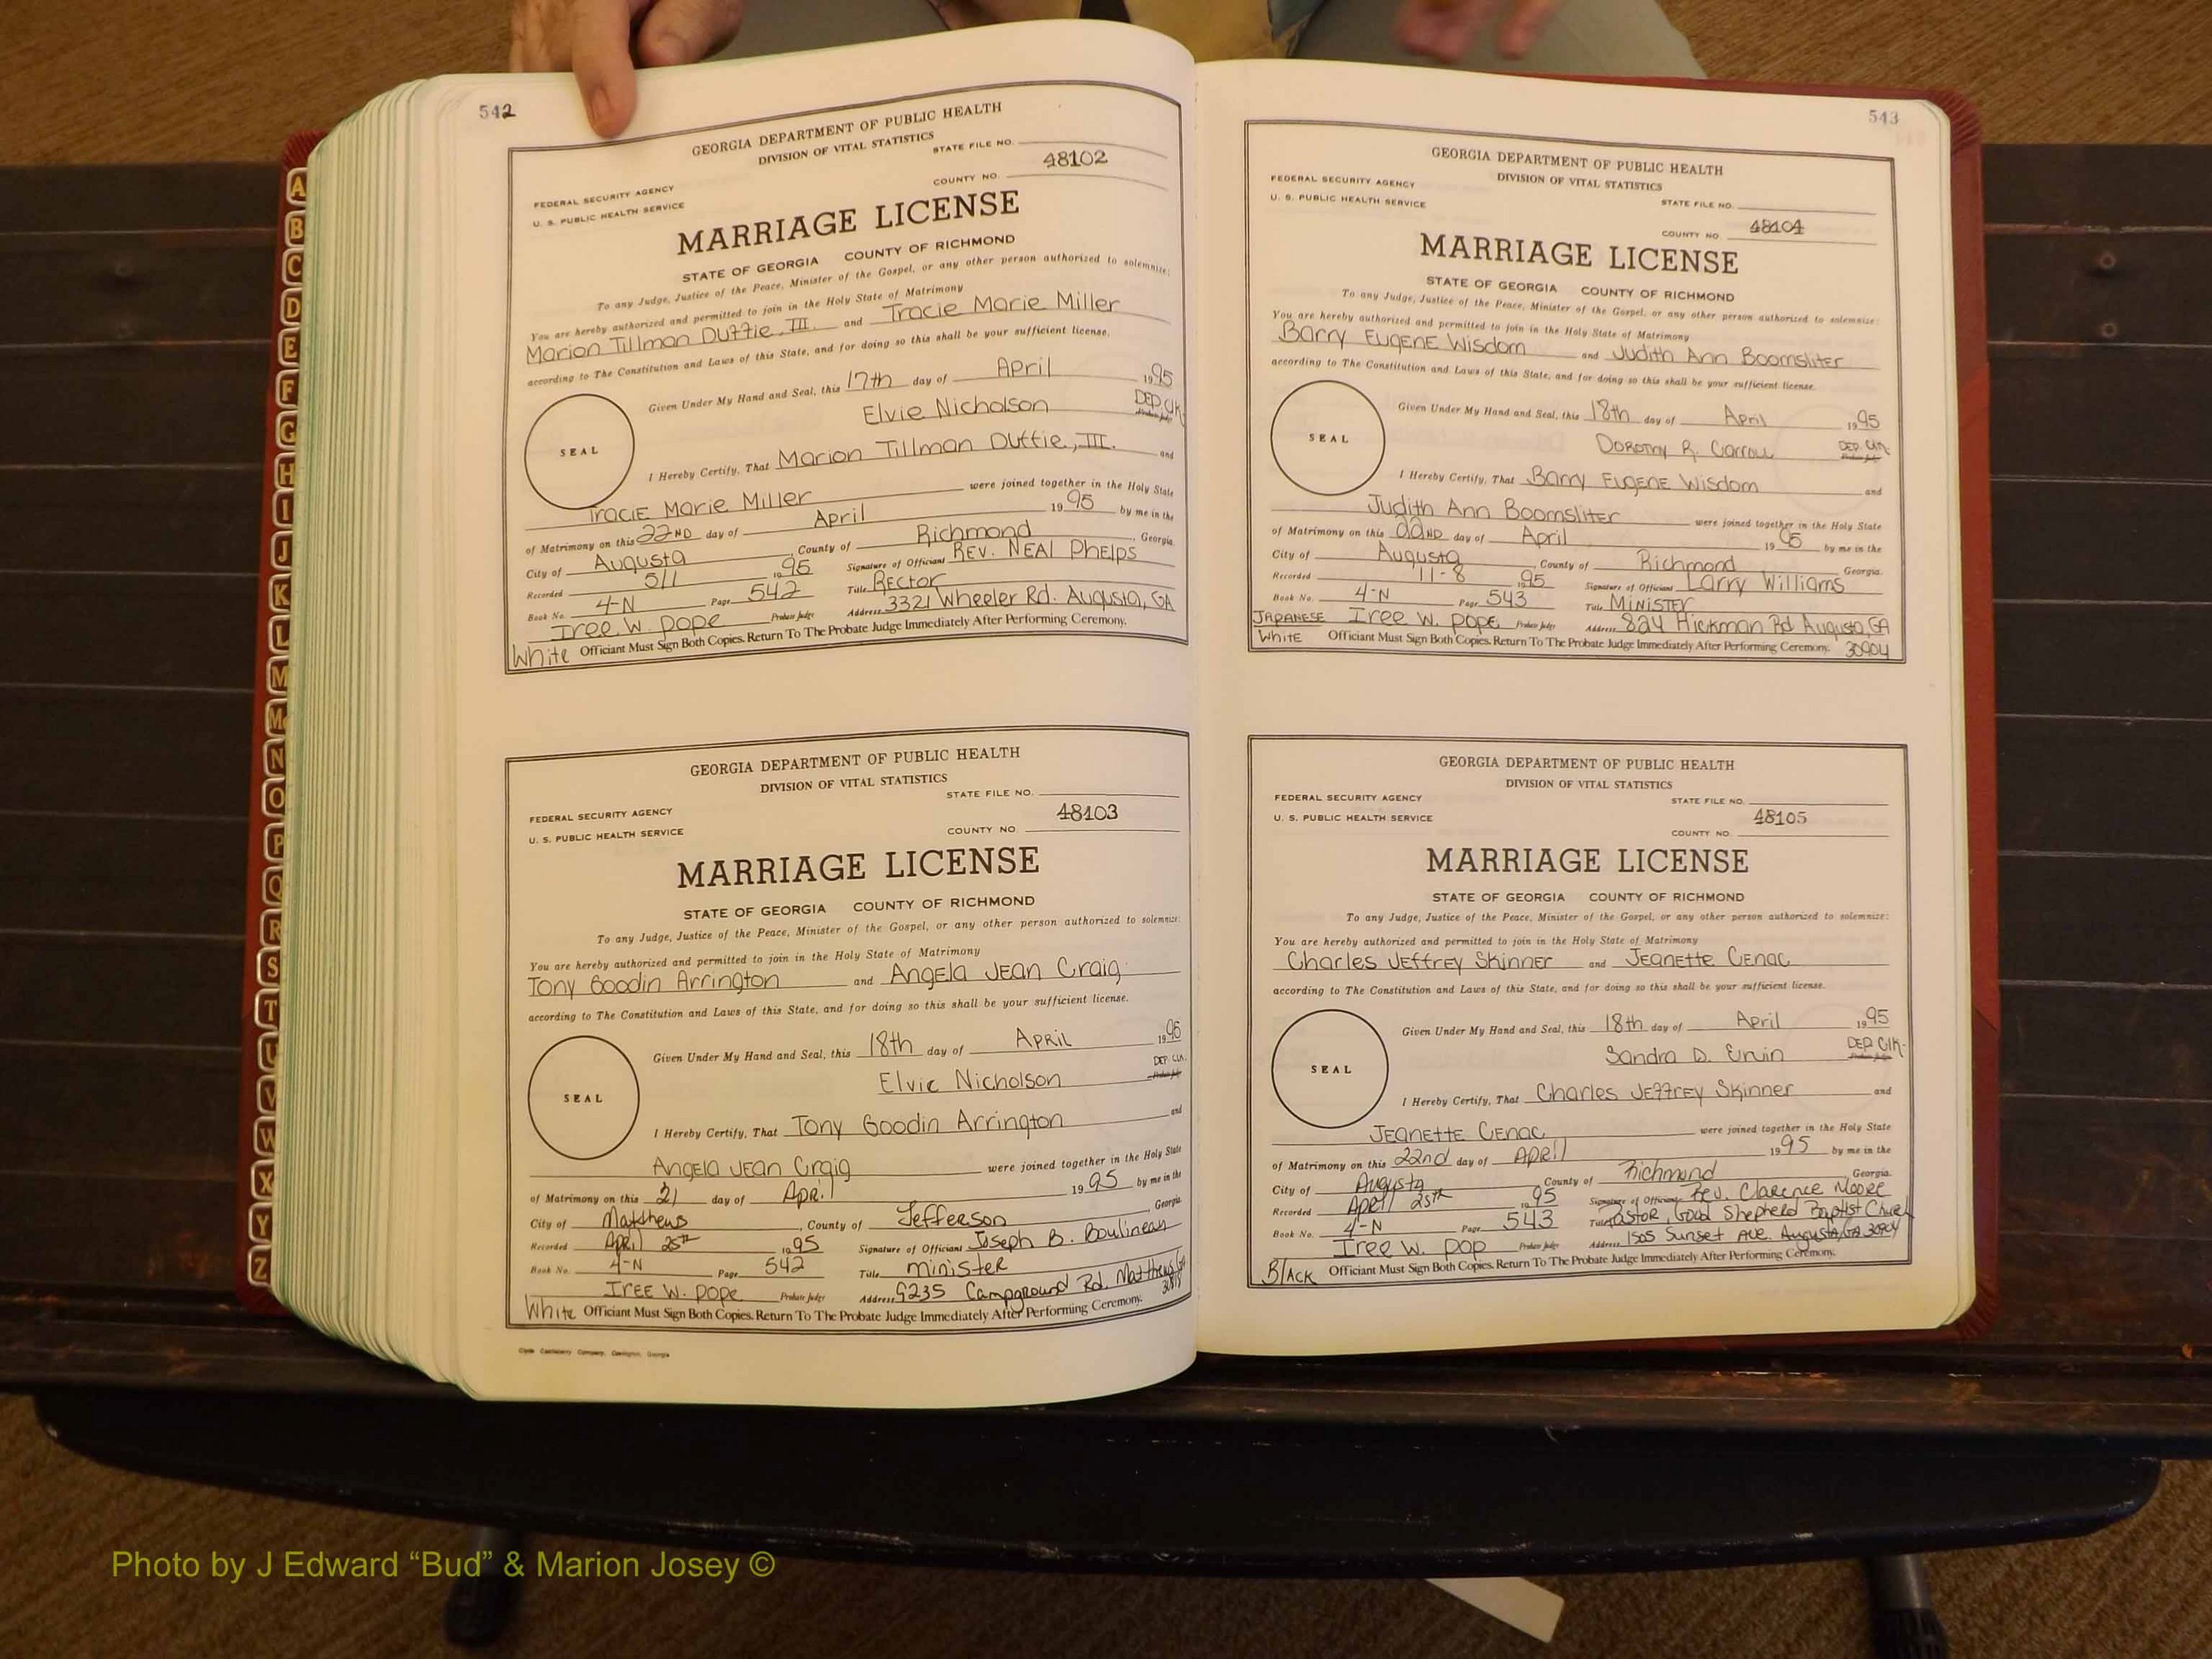 542
GEORGIA DEPARTMENT OF PUBLIC HEALTH
DIVISION OF VITAL STATISTICS
STATE FILE NO.
48102
FEDERAL SECURITY AGENCY
COUNTY NO.
U. S. PUBLIC HEALTH SERVICE
MARRIAGE LICENSE
STATE OF GEORGIA COUNTY OF RICHMOND
To any Judge, Justice of the Peace, Minister of the Gospel, or any other person authorized to solemnize:
You are hereby authorized and permitted to join in the Holy State of Matrimony
Marion Tillman Duttie, III. and Tracie Marie Miller
according to The Constitution and Laws of this State, and for doing so this shall be your sufficient license.
Given Under My Hand and Seal, this 17th day of April 1995
Elvie Nicholson DEP. Clk.
SEAL
I Hereby Certify, That Marion Tillman Duttie, III. and
Tracie Marie Miller were joined together in the Holy State
of Matrimony on this 22ND day of April 1995 by me in the
City of Augusta, County of Richmond, Georgia.
Recorded 5/1 1995 Signature of Officiant REV. NEAL Phelps
Book No. 4-N Page 542 Title RECTOR
Iree W. Pope Probate Judge Address 3321 Wheeler Rd. Augusta, GA
White Officiant Must Sign Both Copies. Return To The Probate Judge Immediately After Performing Ceremony.
GEORGIA DEPARTMENT OF PUBLIC HEALTH
DIVISION OF VITAL STATISTICS
STATE FILE NO.
FEDERAL SECURITY AGENCY
48103
U. S. PUBLIC HEALTH SERVICE
COUNTY NO.
MARRIAGE LICENSE
STATE OF GEORGIA COUNTY OF RICHMOND
To any Judge, Justice of the Peace, Minister of the Gospel, or any other person authorized to solemnize:
You are hereby authorized and permitted to join in the Holy State of Matrimony
Tony Goodin Arrington and Angela Jean Craig
according to The Constitution and Laws of this State, and for doing so this shall be your sufficient license.
Given Under My Hand and Seal, this 18th day of APRIL 1995
Elvie Nicholson DEP. CLK.
SEAL
I Hereby Certify, That Tony Goodin Arrington and
Angela Jean Craig were joined together in the Holy State
of Matrimony on this 21 day of April 1995 by me in the
City of Matthews, County of Jefferson, Georgia.
Recorded April 25th 1995 Signature of Officiant Joseph B. Boulineau
Book No. 4-N Page 542 Title minister
Iree W. Pope Probate Judge Address 9235 Campground Rd. Matthews GA
White Officiant Must Sign Both Copies. Return To The Probate Judge Immediately After Performing Ceremony.
543
GEORGIA DEPARTMENT OF PUBLIC HEALTH
DIVISION OF VITAL STATISTICS
FEDERAL SECURITY AGENCY
U. S. PUBLIC HEALTH SERVICE
STATE FILE NO.
48104
COUNTY NO.
MARRIAGE LICENSE
STATE OF GEORGIA COUNTY OF RICHMOND
To any Judge, Justice of the Peace, Minister of the Gospel, or any other person authorized to solemnize:
You are hereby authorized and permitted to join in the Holy State of Matrimony
Barry Eugene Wisdom and Judith Ann Boomsliter
according to The Constitution and Laws of this State, and for doing so this shall be your sufficient license.
Given Under My Hand and Seal, this 18th day of April 1995
Dorothy R. Carroll DEP. Clk.
SEAL
I Hereby Certify, That Barry Eugene Wisdom and
Judith Ann Boomsliter were joined together in the Holy State
of Matrimony on this 22ND day of April 1995 by me in the
City of Augusta, County of Richmond Georgia.
Recorded 11-8 1995 Signature of Officiant Larry Williams
Book No. 4-N Page 543 Title MINISTER
JAPANESE Iree W. Pope Probate Judge Address 824 Hickman Rd Augusta, GA
White Officiant Must Sign Both Copies. Return To The Probate Judge Immediately After Performing Ceremony. 30904
GEORGIA DEPARTMENT OF PUBLIC HEALTH
DIVISION OF VITAL STATISTICS
FEDERAL SECURITY AGENCY
STATE FILE NO.
U. S. PUBLIC HEALTH SERVICE
48105
COUNTY NO.
MARRIAGE LICENSE
STATE OF GEORGIA COUNTY OF RICHMOND
To any Judge, Justice of the Peace, Minister of the Gospel, or any other person authorized to solemnize:
You are hereby authorized and permitted to join in the Holy State of Matrimony
Charles Jeffrey Skinner and Jeanette Cenac
according to The Constitution and Laws of this State, and for doing so this shall be your sufficient license.
Given Under My Hand and Seal, this 18th day of April 1995
Sandra D. Ervin DEP. Clk.
SEAL
I Hereby Certify, That Charles Jeffrey Skinner and
Jeanette Cenac were joined together in the Holy State
of Matrimony on this 22nd day of April 1995 by me in the
City of Augusta County of Richmond Georgia.
Recorded April 25th 1995 Signature of Officiant Rev. Clarence Moore
Book No. 4-N Page 543 Title Pastor, Good Shepherd Baptist Church
Iree W. Pop Probate Judge Address 1505 Sunset Ave. Augusta, GA 30904
BLACK Officiant Must Sign Both Copies. Return To The Probate Judge Immediately After Performing Ceremony.
A
B
C
D
E
F
G
H
I
J
K
L
M
Mc
N
O
P
Q
R
S
T
U
V
W
X
Y
Z
Photo by J Edward “Bud” & Marion Josey ©